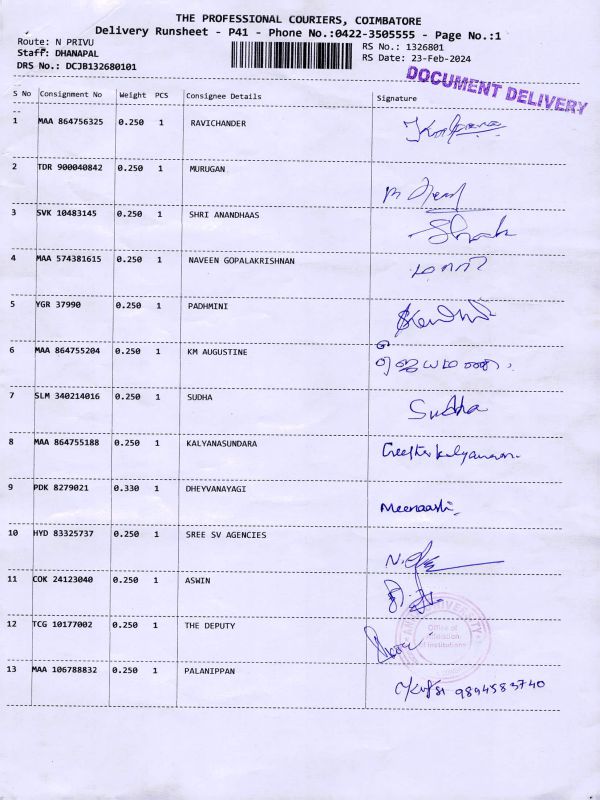 THE PROFESSIONAL COURIERS, COIMBATORE
Delivery Runsheet - P41 - Phone No.:0422-3505555 - Page No.:1
Route: N PRIVU
RS No.: 1326801
Staff: DHANAPAL
RS Date: 23-Feb-2024
DRS No.: DCJB132680101
DOCUMENT DELIVERY
S No Consignment No Weight PCS Consignee Details Signature
1 MAA 864756325 0.250 1 RAVICHANDER
2 TDR 900040842 0.250 1 MURUGAN
3 SVK 10483145 0.250 1 SHRI ANANDHAAS
4 MAA 574381615 0.250 1 NAVEEN GOPALAKRISHNAN
5 YGR 37990 0.250 1 PADHMINI
6 MAA 864755204 0.250 1 KM AUGUSTINE
7 SLM 340214016 0.250 1 SUDHA Sudha
8 MAA 864755188 0.250 1 KALYANASUNDARA
9 PDK 8279021 0.330 1 DHEYVANAYAGI
10 HYD 83325737 0.250 1 SREE SV AGENCIES
11 COK 24123040 0.250 1 ASWIN
12 TCG 10177002 0.250 1 THE DEPUTY
Office of
of Institutions
13 MAA 106788832 0.250 1 PALANIPPAN 9894583740